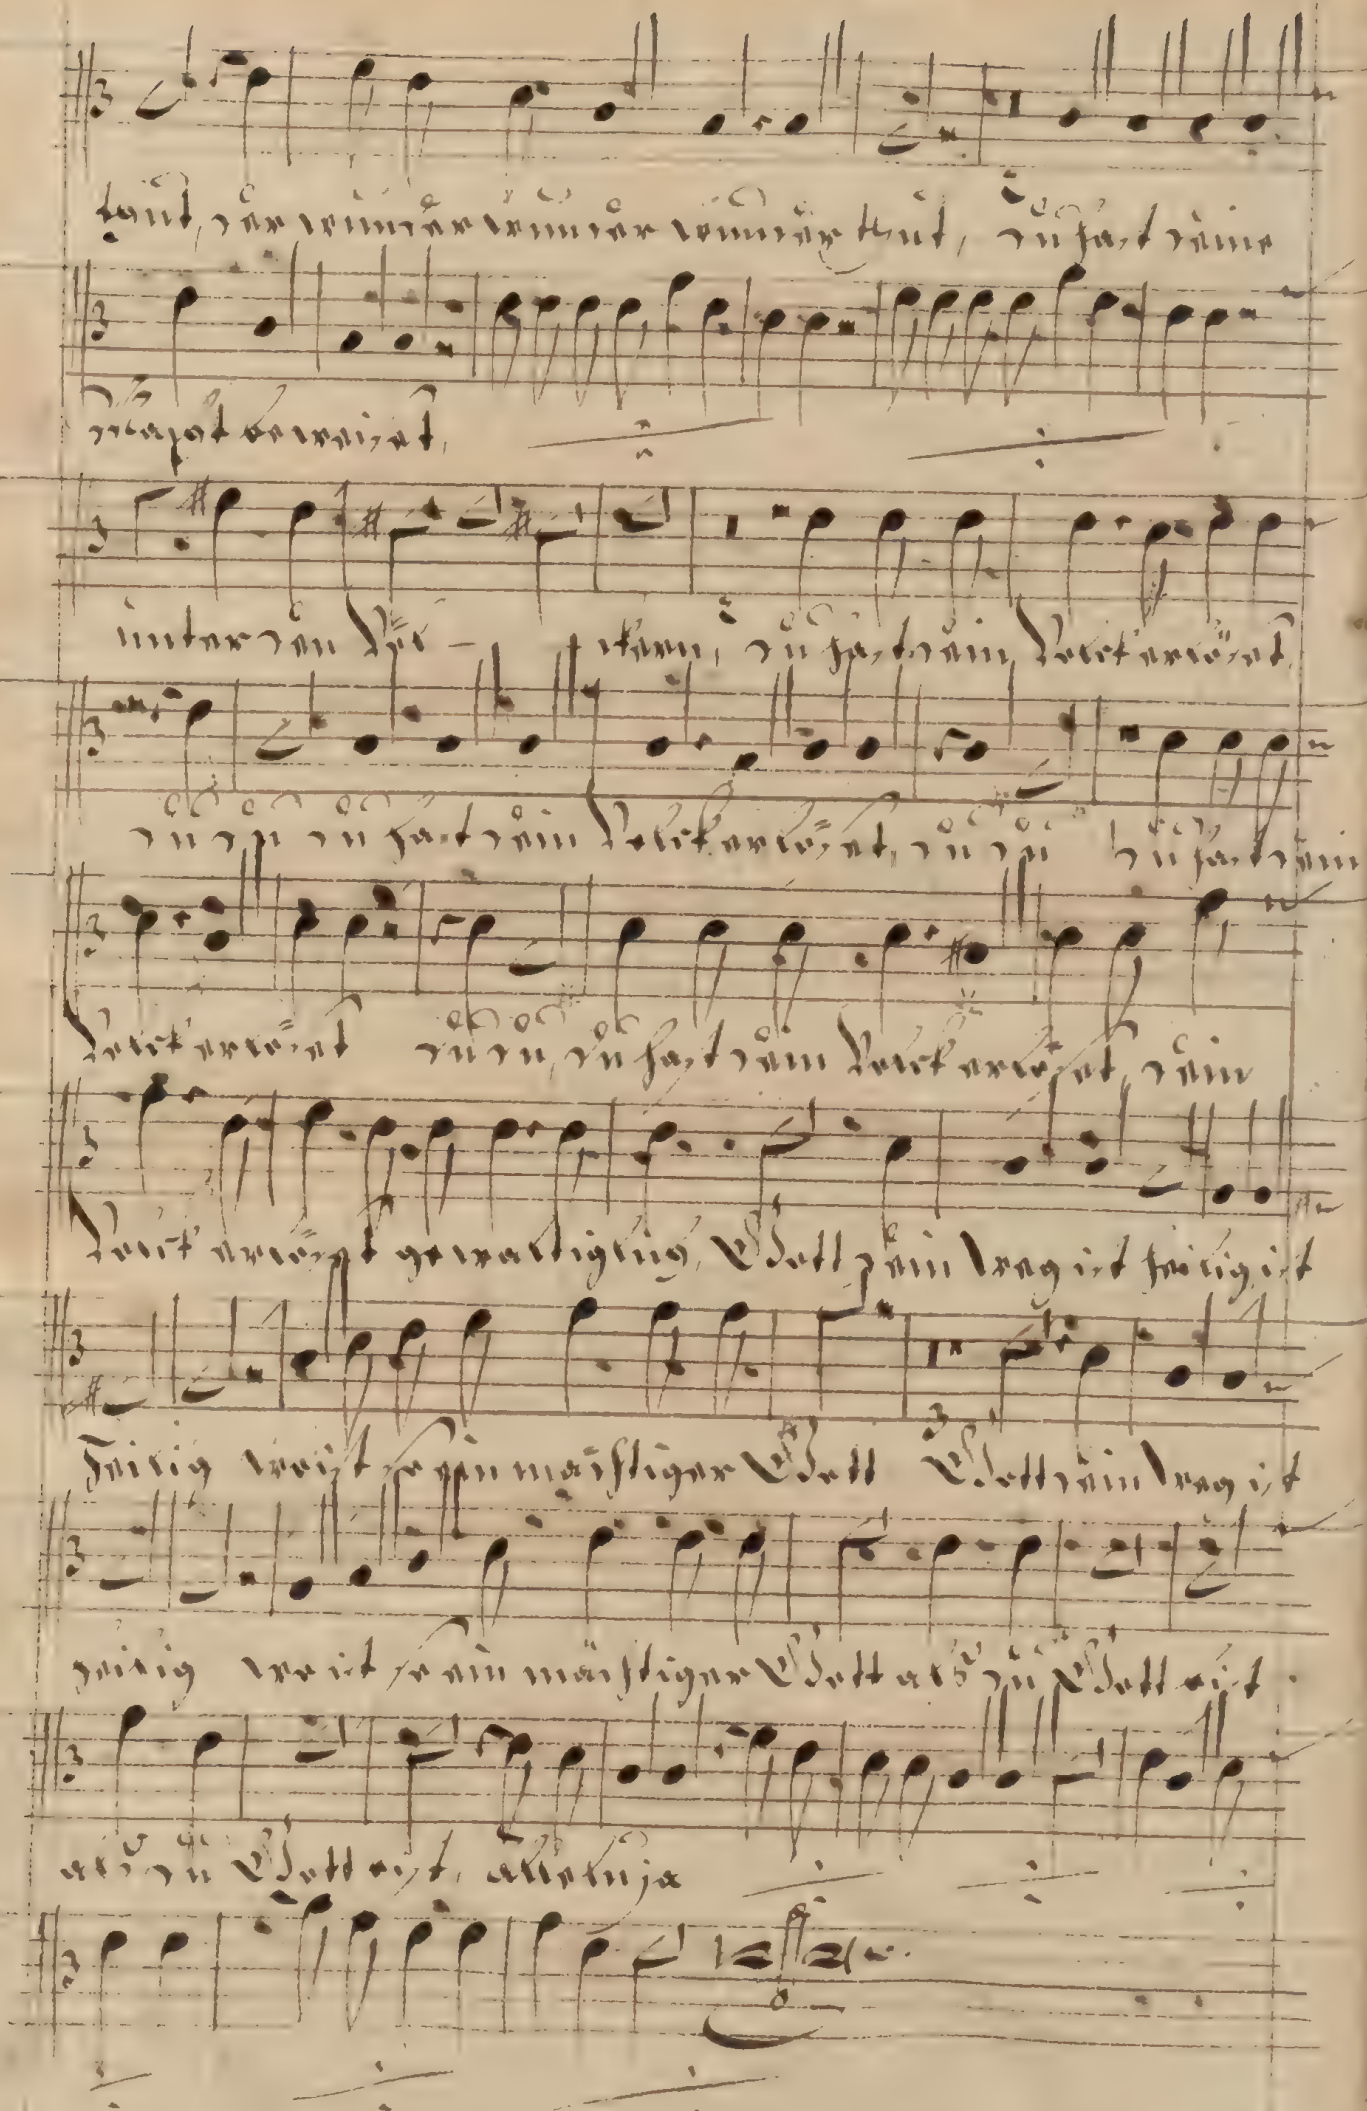 thut, der wunder wunder wunder thut, du hast deine
Macht beweiset,
unter den Völ - ckern, du hast dein Volck erlöset,
du du du hast dein Volck erlöset, du du du hast dein
Volck erlöset du du, du hast dein Volck erlöset, dein
Volck erlöset gewaltiglich, Gott dein weg ist heilig ist
heilig wo ist so ein mächtiger Gott Gott dein weg ist
heilig wo ist so ein mächtiger Gott als du Gott bist
als du Gott bist, alleluja